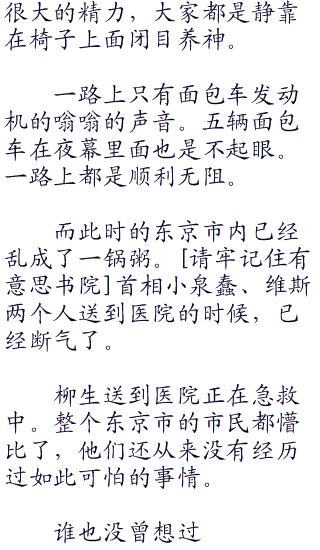 很大的精力，大家都是静靠
在椅子上面闭目养神。
一路上只有面包车发动
机的嗡嗡的声音。五辆面包
车在夜幕里面也是不起眼。
一路上都是顺利无阻。
而此时的东京市内已经
乱成了一锅粥。[请牢记住有
意思书院]首相小泉蠢、维斯
两个人送到医院的时候，已
经断气了。
柳生送到医院正在急救
中。整个东京市的市民都懵
比了，他们还从来没有经历
过如此可怕的事情。
谁也没曾想过